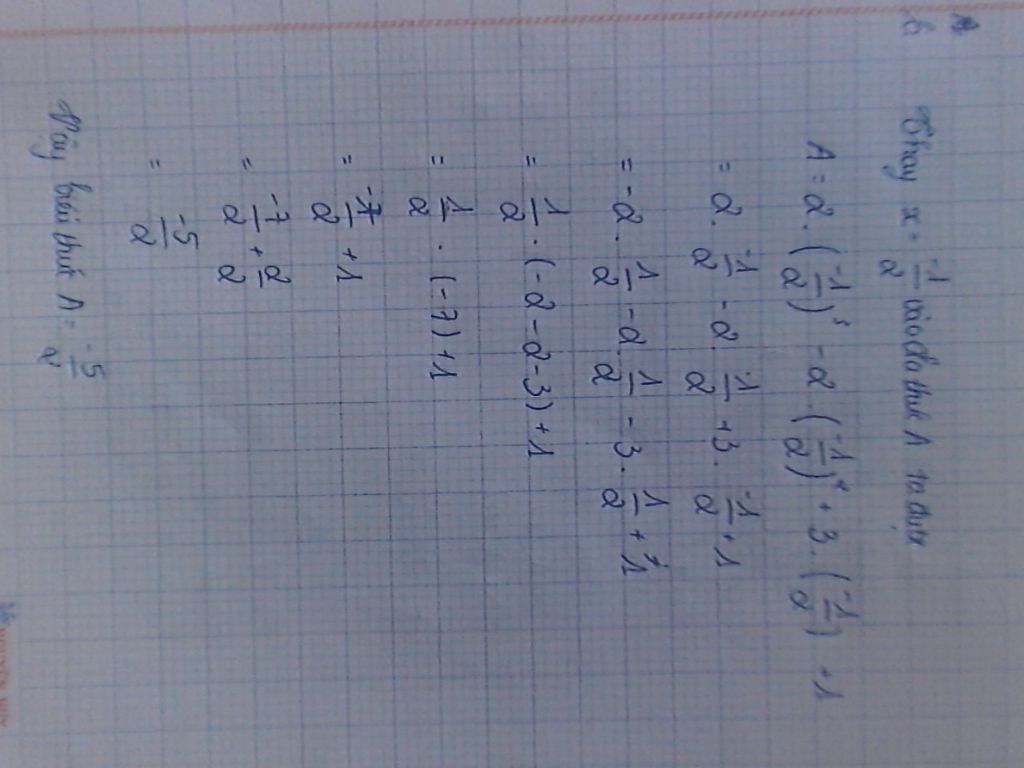 b Thay x = -1/2 vào đa thức A ta được
A = 2 . (-1/2)³ - 2 . (-1/2)² + 3 . (-1/2) + 1
= 2 . -1/2 - 2 . -1/2 + 3 . -1/2 + 1
= -2 . 1/2 - 2 . 1/2 - 3 . 1/2 + 1
= 1/2 . (-2 - 2 - 3) + 1
= 1/2 . (-7) + 1
= -7/2 + 1
= -7/2 + 2/2
= -5/2
Vậy biểu thức A = -5/2